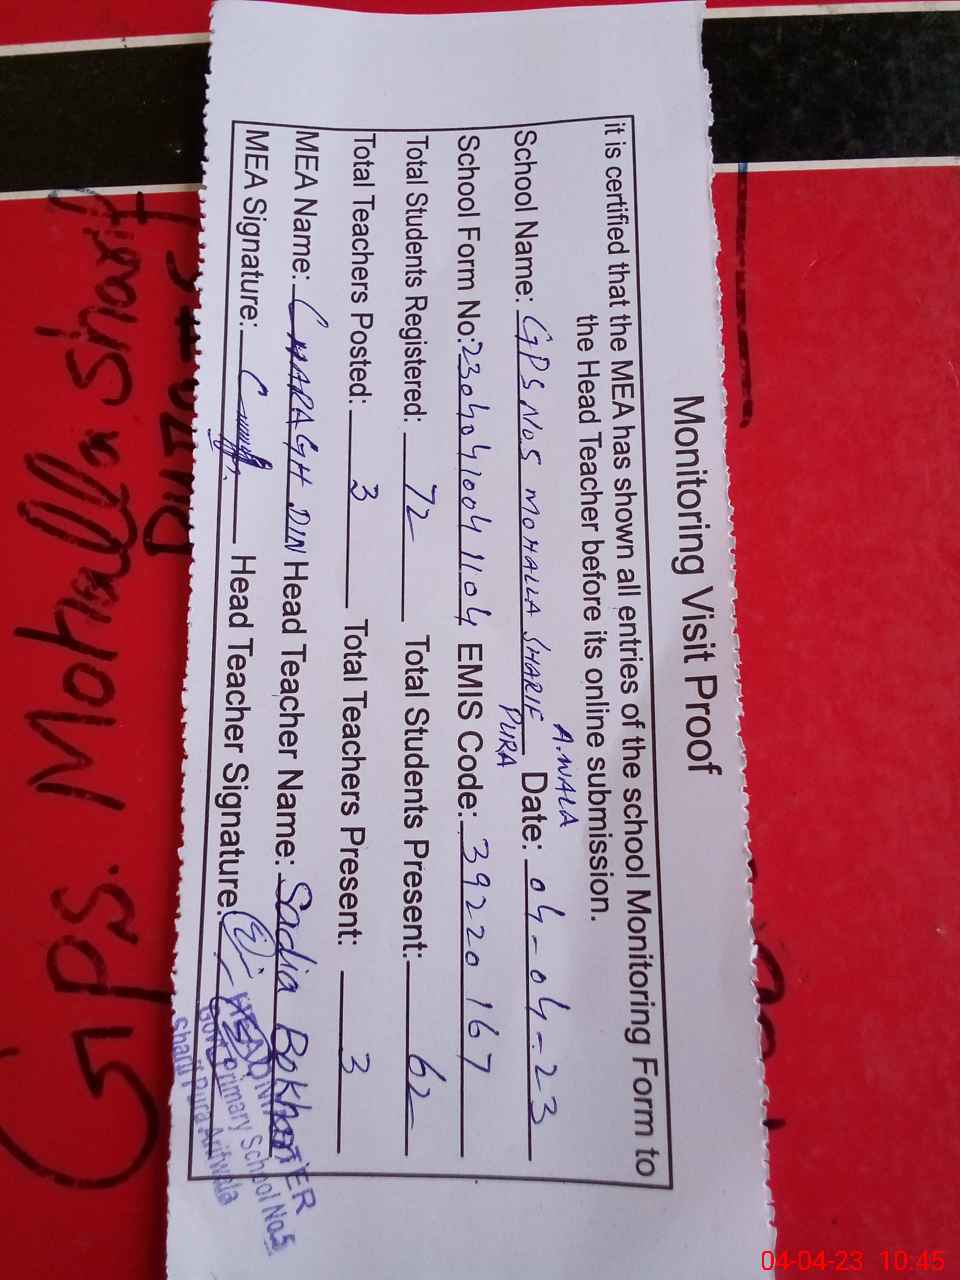 Monitoring Visit Proof
it is certified that the MEA has shown all entries of the school Monitoring Form to
the Head Teacher before its online submission.
School Name: GPS No.5 MOHALLA SHARIF PURA A.WALA Date: 04-04-23
School Form No: 23040410041104 EMIS Code: 39220167
Total Students Registered: 72 Total Students Present: 62
Total Teachers Posted: 3 Total Teachers Present: 3
MEA Name: CHARAGH DIN Head Teacher Name: Sadia Bokhari
MEA Signature: Head Teacher Signature:
Govt Primary School No.5
Sharif Pura Arifwala
GPS. Mohalla Sharif
04-04-23 10:45